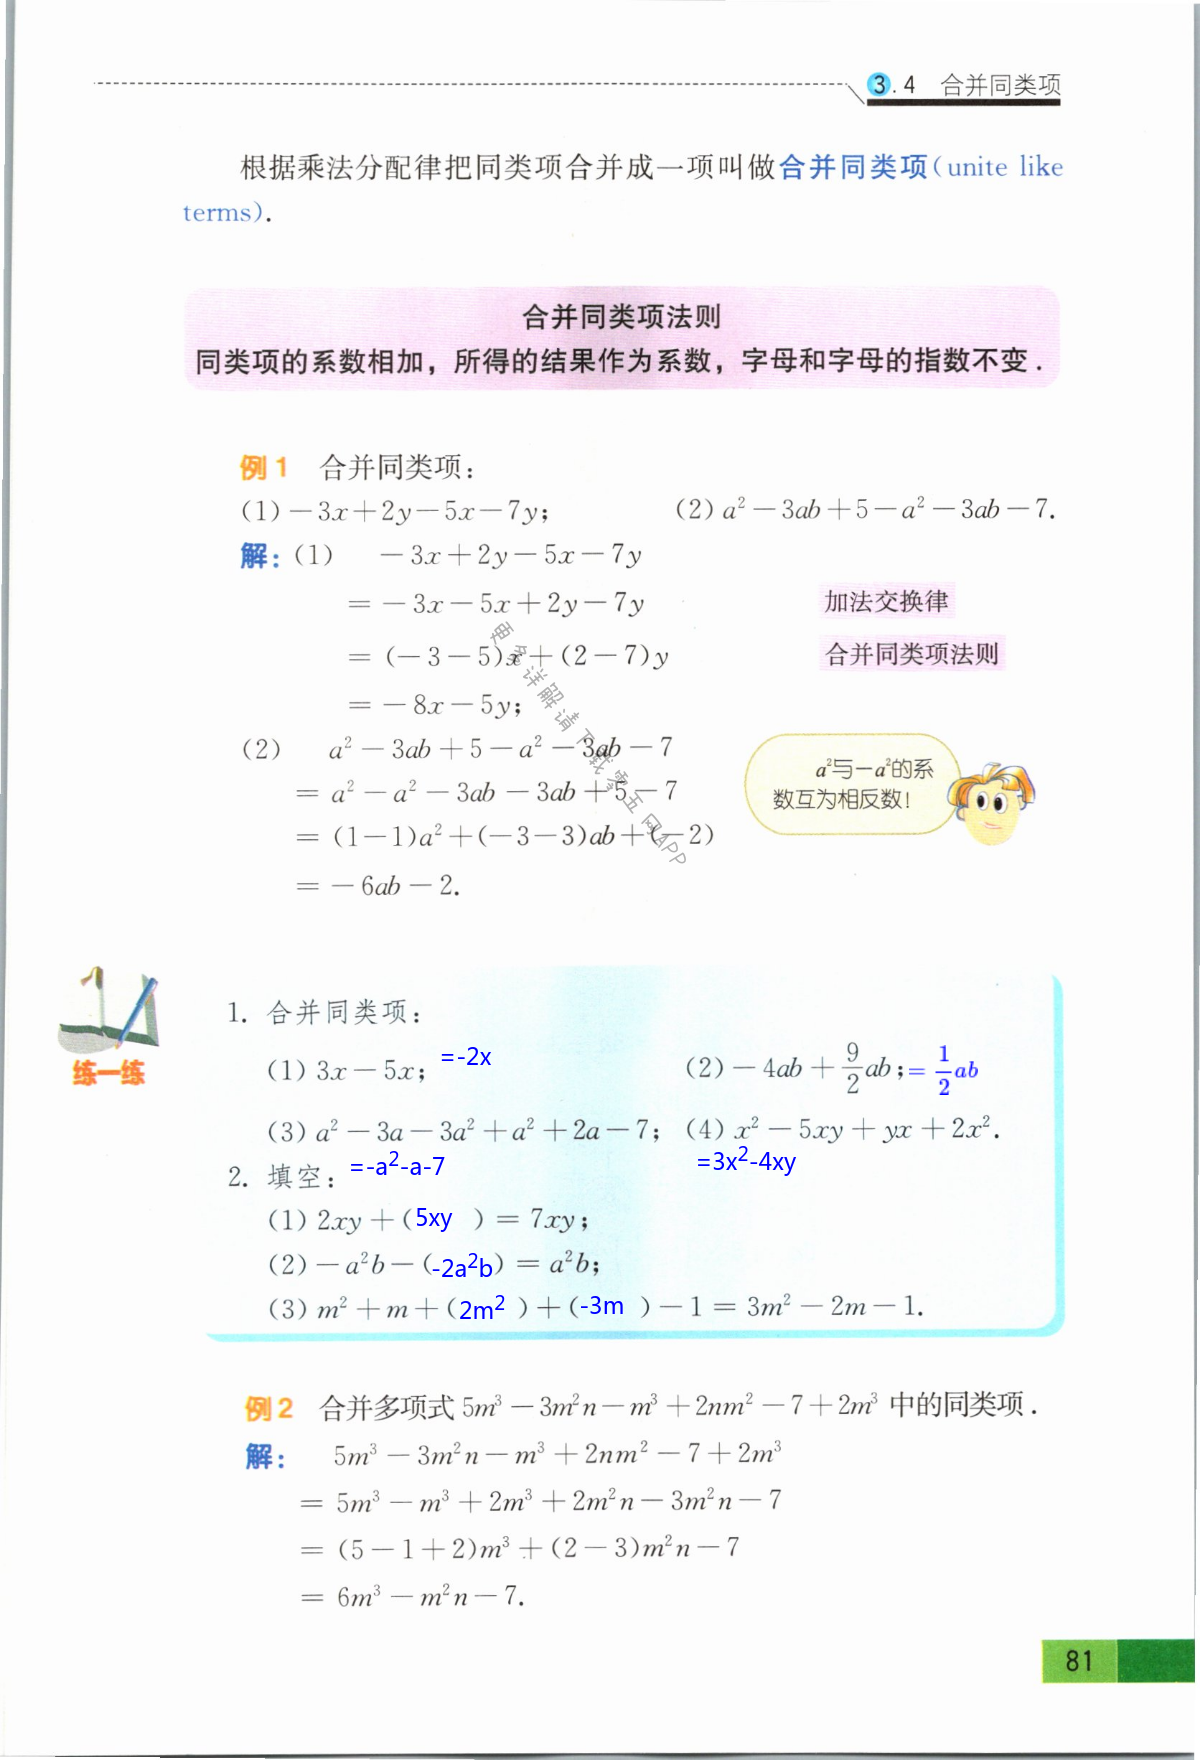 3.4 合并同类项
根据乘法分配律把同类项合并成一项叫做合并同类项(unite like
terms).
合并同类项法则
同类项的系数相加，所得的结果作为系数，字母和字母的指数不变.
例1 合并同类项:
(1)－3x＋2y－5x－7y; (2) a²－3ab＋5－a²－3ab－7.
解: (1) －3x＋2y－5x－7y
＝－3x－5x＋2y－7y 加法交换律
＝(－3－5)x＋(2－7)y 合并同类项法则
＝－8x－5y;
(2) a²－3ab＋5－a²－3ab－7
＝a²－a²－3ab－3ab＋5－7
＝(1－1)a²＋(－3－3)ab＋(－2)
＝－6ab－2.
a²与－a²的系
数互为相反数!
更多详解请下载零五网APP
练一练
1. 合并同类项:
(1) 3x－5x; =-2x (2)－4ab＋9/2ab; =1/2ab
(3) a²－3a－3a²＋a²＋2a－7; (4) x²－5xy＋yx＋2x².
=-a²-a-7 =3x²-4xy
2. 填空:
(1) 2xy＋(5xy )＝7xy;
(2)－a²b－(-2a²b)＝a²b;
(3) m²＋m＋(2m² )＋(-3m )－1＝3m²－2m－1.
例2 合并多项式 5m³－3m²n－m³＋2nm²－7＋2m³ 中的同类项.
解: 5m³－3m²n－m³＋2nm²－7＋2m³
＝5m³－m³＋2m³＋2m²n－3m²n－7
＝(5－1＋2)m³＋(2－3)m²n－7
＝6m³－m²n－7.
81